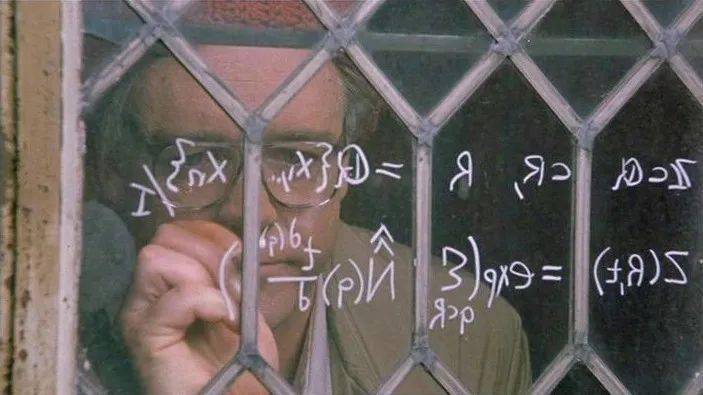 Z⊂Q, ⊂R, R = Q{X₁, ... Xₙ}/I
Z(R,t) = exp(Σ q⊂R N̂(q) t^d(q)/d)